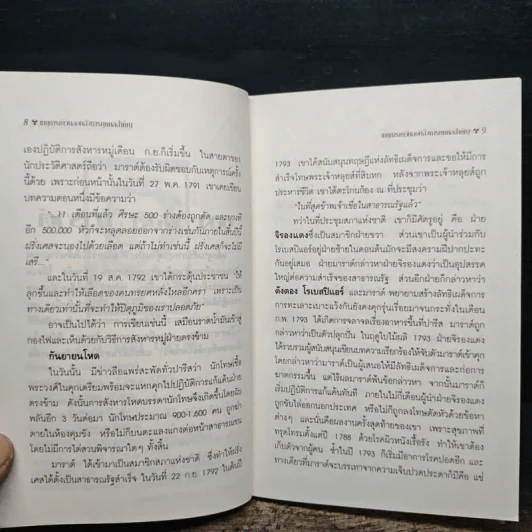 8
เองปฏิบัติการสังหารหมู่เดือน ก.ย.ก็เริ่มขึ้น ในสายตาของ
นักประวัติศาสตร์ถือว่า มาราต์ต้องรับผิดชอบกับเหตุการณ์ครั้ง
นี้ด้วย เพราะก่อนหน้านั้นในวันที่ 27 พ.ค. 1791 เขาเคยเขียน
บทความตอนหนึ่งมีข้อความว่า
"...11 เดือนที่แล้ว ศีรษะ 500 ร่างต้องถูกตัด และยุงที่
อีก 500,000 หัวก็จะหลุดลอยออกจากร่างเช่นกันภายในสิ้นปีนี้
ฝรั่งเศสจะนองไปด้วยเลือด แต่ถ้าไม่ทำเช่นนี้ ฝรั่งเศสก็จะไม่มี
เสรี..."
และในวันที่ 19 ส.ค. 1792 เขาได้กระตุ้นประชาชน "ให้
ลุกขึ้นและทำให้เลือดของคนทรยศหลั่งไหลอีกครา เพราะเป็น
ทางเดียวเท่านั้นที่จะทำให้ปิตุภูมิของเราปลอดภัย"
อาจเป็นไปได้ว่า การเขียนเช่นนี้ เสมือนราดน้ำมันเข้าสู่
กองไฟและเห็นด้วยกับวิธีการสังหารหมู่ฝ่ายตรงข้าม
กันยายนโหด
ในวันนั้น มีข่าวลือแพร่สะพัดทั่วปารีสว่า นักโทษเชื้อ
พระวงศ์ในคุกเตรียมพร้อมจะแหกคุกไปปฏิบัติการแก้แค้นฝ่าย
ตรงข้าม ดังนั้นการสังหารโหดบรรดานักโทษจึงเกิดขึ้นโดยฉับ
พลันอีก 3 วันต่อมา นักโทษประมาณ 900-1,600 คน ถูกฆ่า
ตายในห้องคุมขัง หรือไม่ก็บนตะแลงแกงต่อหน้าสาธารณชน
โดยไม่มีการไต่สวนพิจารณาใดๆ ทั้งสิ้น
มาราต์ ได้เข้ามาเป็นสมาชิกสภาแห่งชาติ ซึ่งทำให้ฝรั่ง
เศสได้ตั้งเป็นสาธารณรัฐสำเร็จ ในวันที่ 22 ก.ย. 1792 ในต้นปี
9
1793 เขาได้สนับสนุนทฤษฎีแห่งลัทธิเผด็จการและขอให้มีการ
สำเร็จโทษพระเจ้าหลุยส์ที่สิบหก หลังจากพระเจ้าหลุยส์ถูก
ประหารชีวิต เขาได้ตะโกนก้อง ณ ที่ประชุมว่า
"ในที่สุดข้าพเจ้าเชื่อในสาธารณรัฐแล้ว"
ทว่าในที่ประชุมสภาแห่งชาติ เขาก็มีศัตรูอยู่ คือ ฝ่าย
จิรองแดงซึ่งเป็นสมาชิกฝ่ายขวา ส่วนเขาเป็นผู้นำร่วมกับ
โรเบสปิแอร์อยู่ฝ่ายซ้ายในตอนต้นมักจะมีสงครามฝีปากปะทะ
กันอยู่เสมอ ฝ่ายมาราต์กล่าวหาฝ่ายจิรองแดงว่าเป็นอุปสรรค
ใหญ่ต่อความสำเร็จของสาธารณรัฐ ส่วนอีกฝ่ายก็กล่าวหาว่า
ดังตอง โรเบสปิแอร์ และมาราต์ พยายามสร้างลัทธิเผด็จการ
การทะเลาะเบาะแว้งกันยังคงคุกรุ่นเรื่อยมาจนกระทั่งในเดือน
ก.พ. 1793 ได้เกิดการจลาจลเรื่องอาหารขึ้นที่ปารีส มาราต์ถูก
กล่าวหาว่าเป็นตัวปลุกปั่น ในฤดูใบไม้ผลิ 1793 ฝ่ายจิรองแดง
ได้รวมผู้สนับสนุนเขียนบทความเรียกร้องให้จับตัวมาราต์เข้าคุก
โดยกล่าวหาว่ามาราต์เป็นผู้เสนอให้มีลัทธิเผด็จการและก่อการ
ฆาตกรรมขึ้น แต่ใช้ผลมาราต์พ้นข้อกล่าวหา จากนั้นมาราต์ก็
เริ่มปฏิบัติการแก้แค้นทันที ภายในไม่กี่เดือนผู้นำฝ่ายจิรองแดง
ถูกขับไล่ออกนอกประเทศ หรือไม่ก็ถูกลงโทษตัดหัวด้วยข้อหา
ต่างๆ และนั่นคือผลงานครั้งสุดท้ายของเขา เพราะสุขภาพที่
ทรุดโทรมตั้งแต่ปี 1788 ด้วยโรคผิวหนังเรื้อรัง ทำให้เขาต้อง
เก็บตัวจากผู้คน ซ้ำในปี 1793 ก็เริ่มมีอาการโรคปอดอีก และ
ทางเดียวที่มาราต์จะบรรเทาจากความเจ็บปวดประดาก็มีคือ แช่